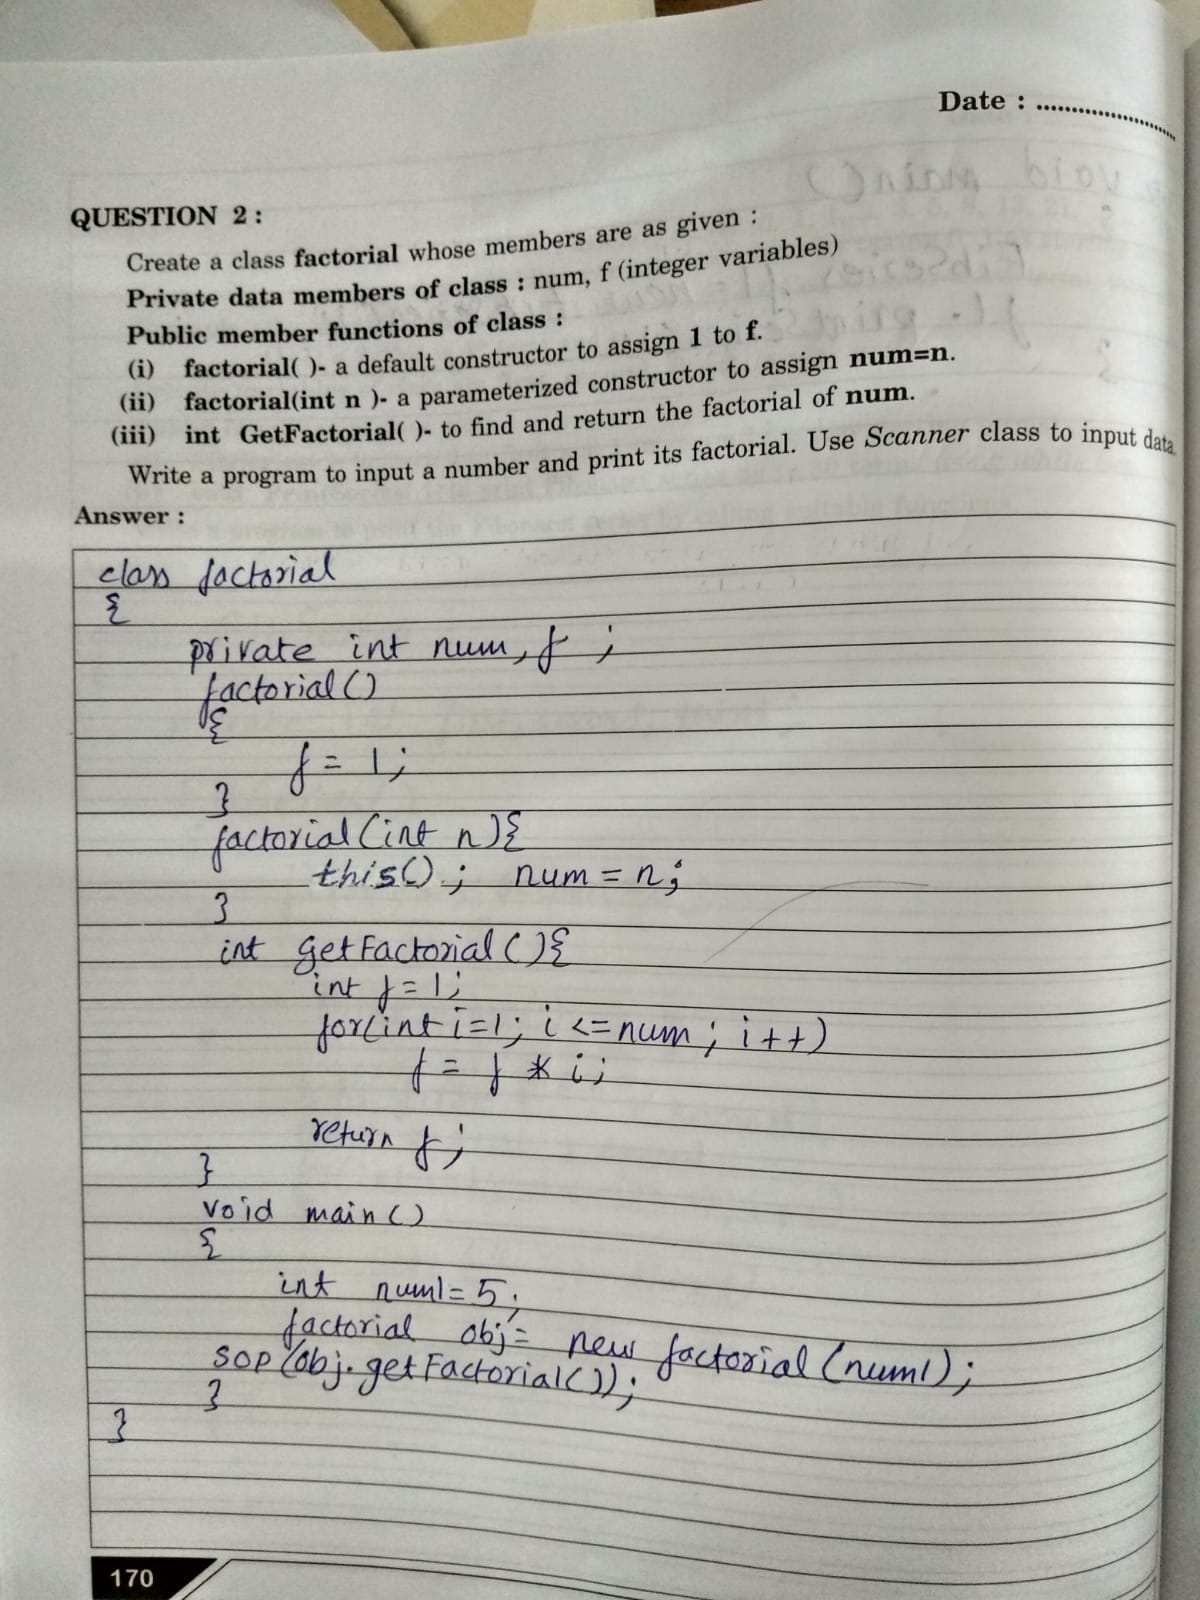 Date : ........................
QUESTION 2 :
Create a class factorial whose members are as given :
Private data members of class : num, f (integer variables)
Public member functions of class :
(i) factorial( )- a default constructor to assign 1 to f.
(ii) factorial(int n )- a parameterized constructor to assign num=n.
(iii) int GetFactorial( )- to find and return the factorial of num.
Write a program to input a number and print its factorial. Use Scanner class to input data.
Answer :
class factorial
{
private int num, f ;
factorial()
{
f = 1;
}
factorial(int n){
this(); num = n;
}
int getFactorial(){
int f = 1;
for(int i=1; i <= num ; i++)
f = f * i;
return f;
}
void main()
{
int num1 = 5;
factorial obj = new factorial(num1);
sop(obj.getFactorial());
}
}
170